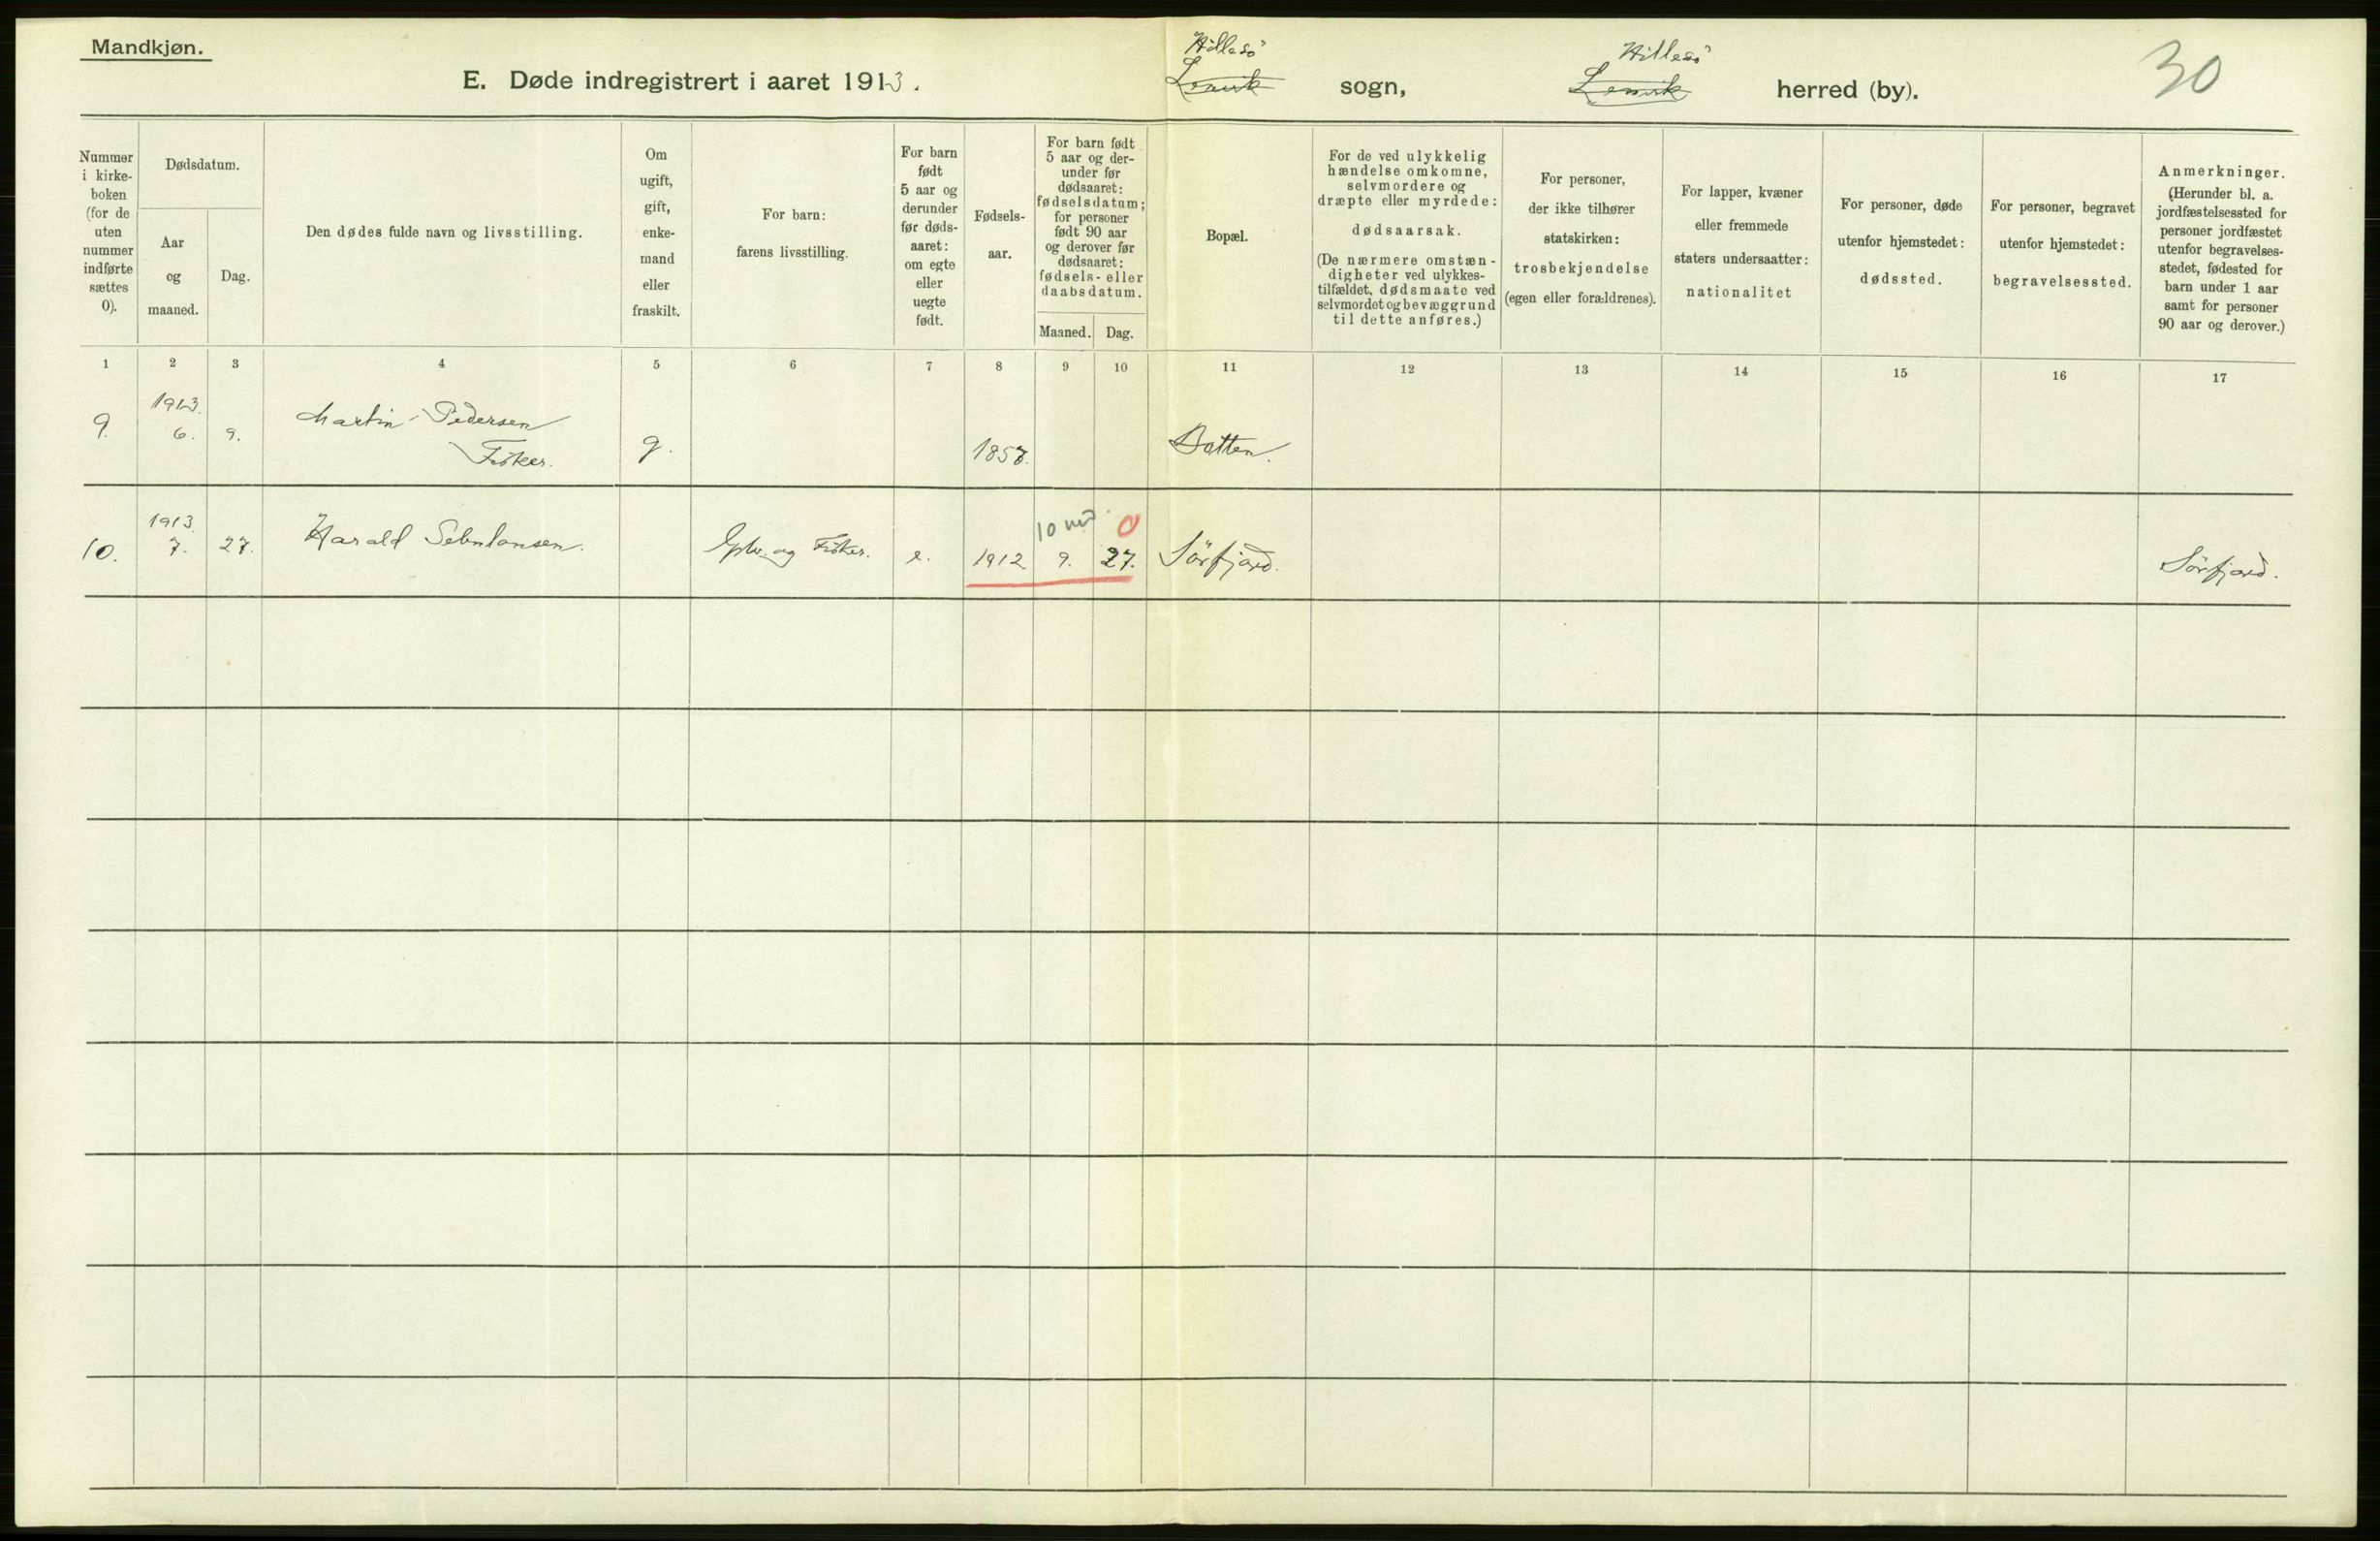 Mandkjøn.
E. Døde indregistrert i aaret 1913.
Hillesö
Lenvik
sogn,
Hillesö
Lenvik
herred (by).
30
Nummer
i kirke-
boken
(for de
uten
nummer
indførte
sættes
0).
Dødsdatum.
Aar
og
maaned.
Dag.
Den dødes fulde navn og livsstilling.
Om
ugift,
gift,
enke-
mand
eller
fraskilt.
For barn:
farens livsstilling.
For barn
født
5 aar og
derunder
før døds-
aaret:
om egte
eller
uegte
født.
Fødsels-
aar.
For barn født
5 aar og der-
under før
dødsaaret:
fødselsdatum;
for personer
født 90 aar
og derover før
dødsaaret:
fødsels- eller
daabsdatum.
Maaned.
Dag.
Bopæl.
For de ved ulykkelig
hændelse omkomne,
selvmordere og
dræpte eller myrdede:
dødsaarsak.
(De nærmere omstæn-
digheter ved ulykkes-
tilfældet, dødsmaate ved
selvmordet og bevæggrund
til dette anføres.)
For personer,
der ikke tilhører
statskirken:
trosbekjendelse
(egen eller forældrenes).
For lapper, kvæner
eller fremmede
staters undersaatter:
nationalitet
For personer, døde
utenfor hjemstedet:
dødssted.
For personer, begravet
utenfor hjemstedet:
begravelsessted.
Anmerkninger.
(Herunder bl. a.
jordfæstelsessted for
personer jordfæstet
utenfor begravelses-
stedet, fødested for
barn under 1 aar
samt for personer
90 aar og derover.)
1 2 3 4 5 6 7 8 9 10 11 12 13 14 15 16 17
1913.
9. 6. 9. Martin Pedersen
Fisker. g. Botten.
1913 10 md. 0
10. 7. 27. Harald Gbr. og Fisker. e. 1912 9. 27. Sörfjord. Sörfjord.